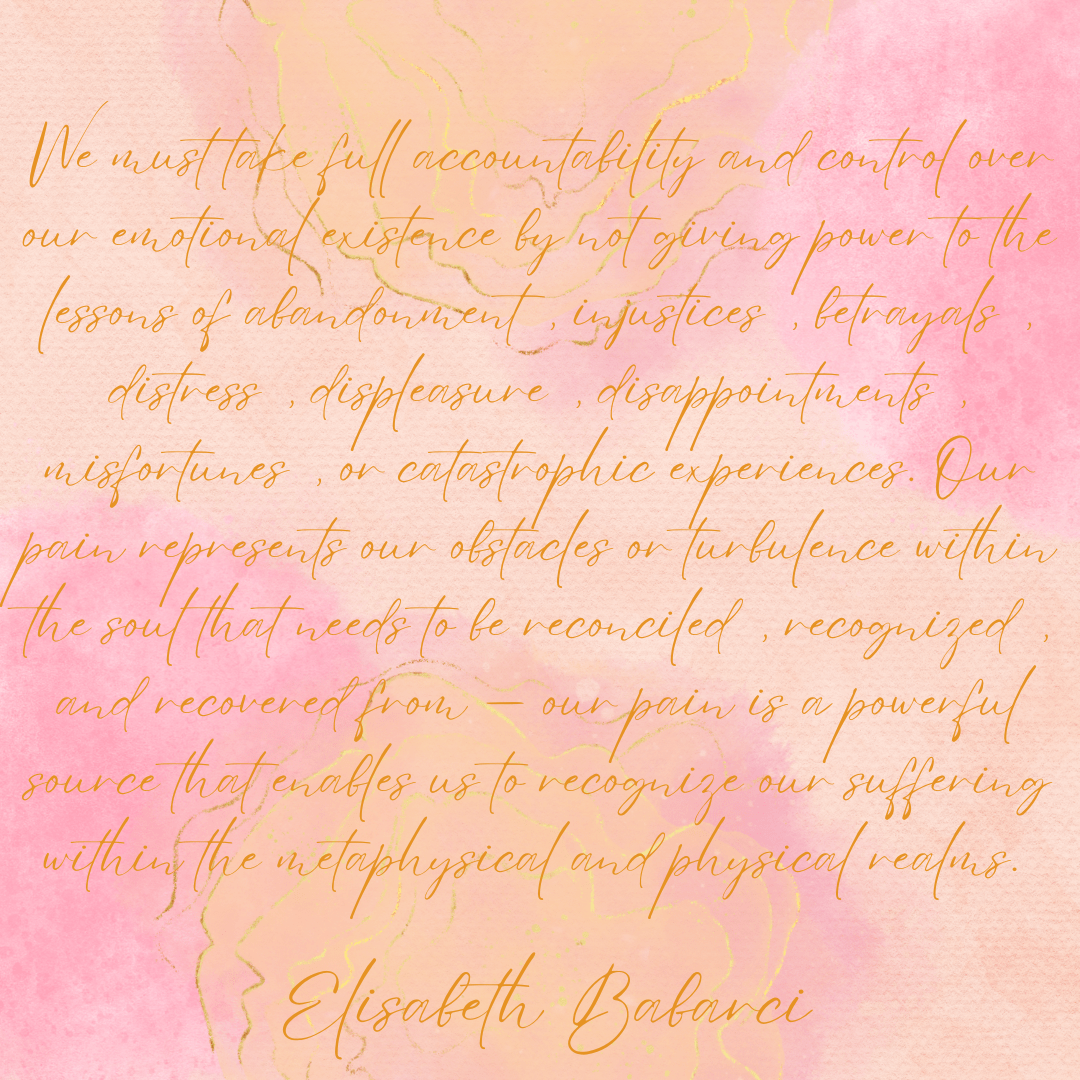 We must take full accountability and control over
our emotional existence by not giving power to the
lessons of abandonment , injustices , betrayals ,
distress , displeasure , disappointments ,
misfortunes , or catastrophic experiences. Our
pain represents our obstacles or turbulence within
the soul that needs to be reconciled , recognized ,
and recovered from — our pain is a powerful
source that enables us to recognize our suffering
within the metaphysical and physical realms.
Elisabeth Babarci